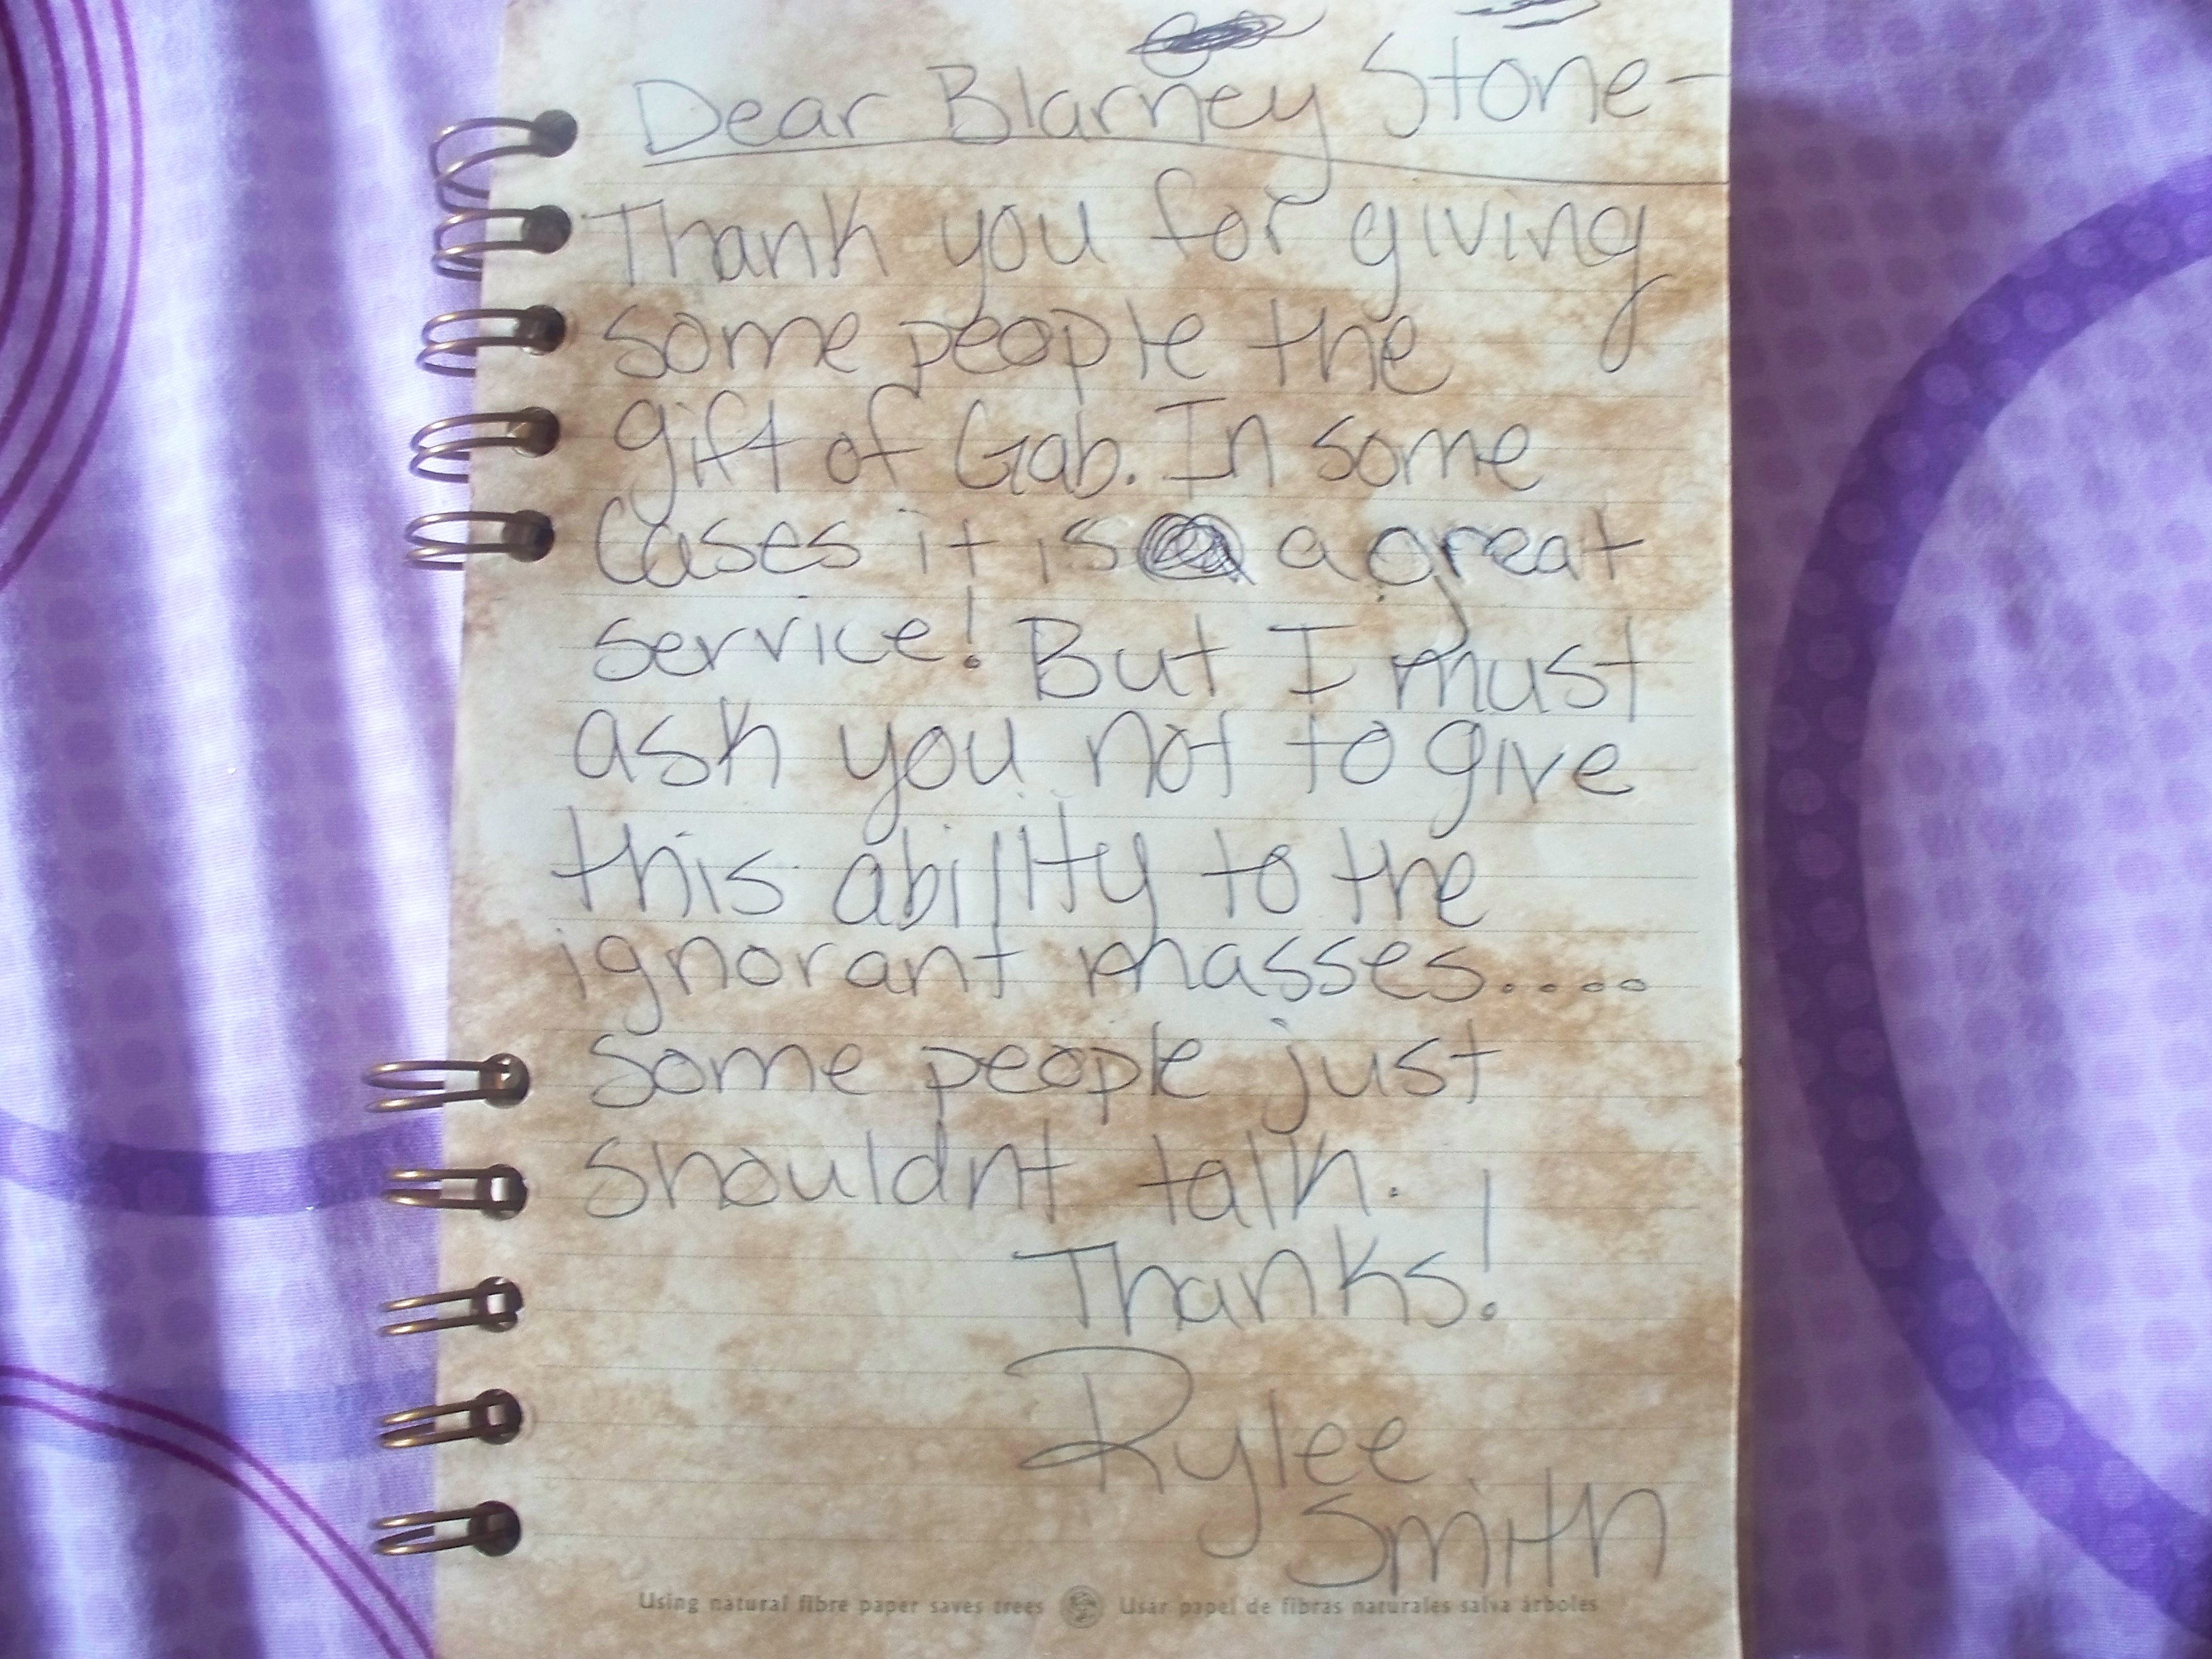 Dear Blarney Stone-
Thank you for giving
some people the
gift of Gab. In some
Cases it is a great
service! But I must
ask you not to give
this ability to the
ignorant masses....
some people just
shouldnt talk.
Thanks!
Rylee
Smith
Using natural fibre paper saves trees Usar papel de fibras naturales salva árboles